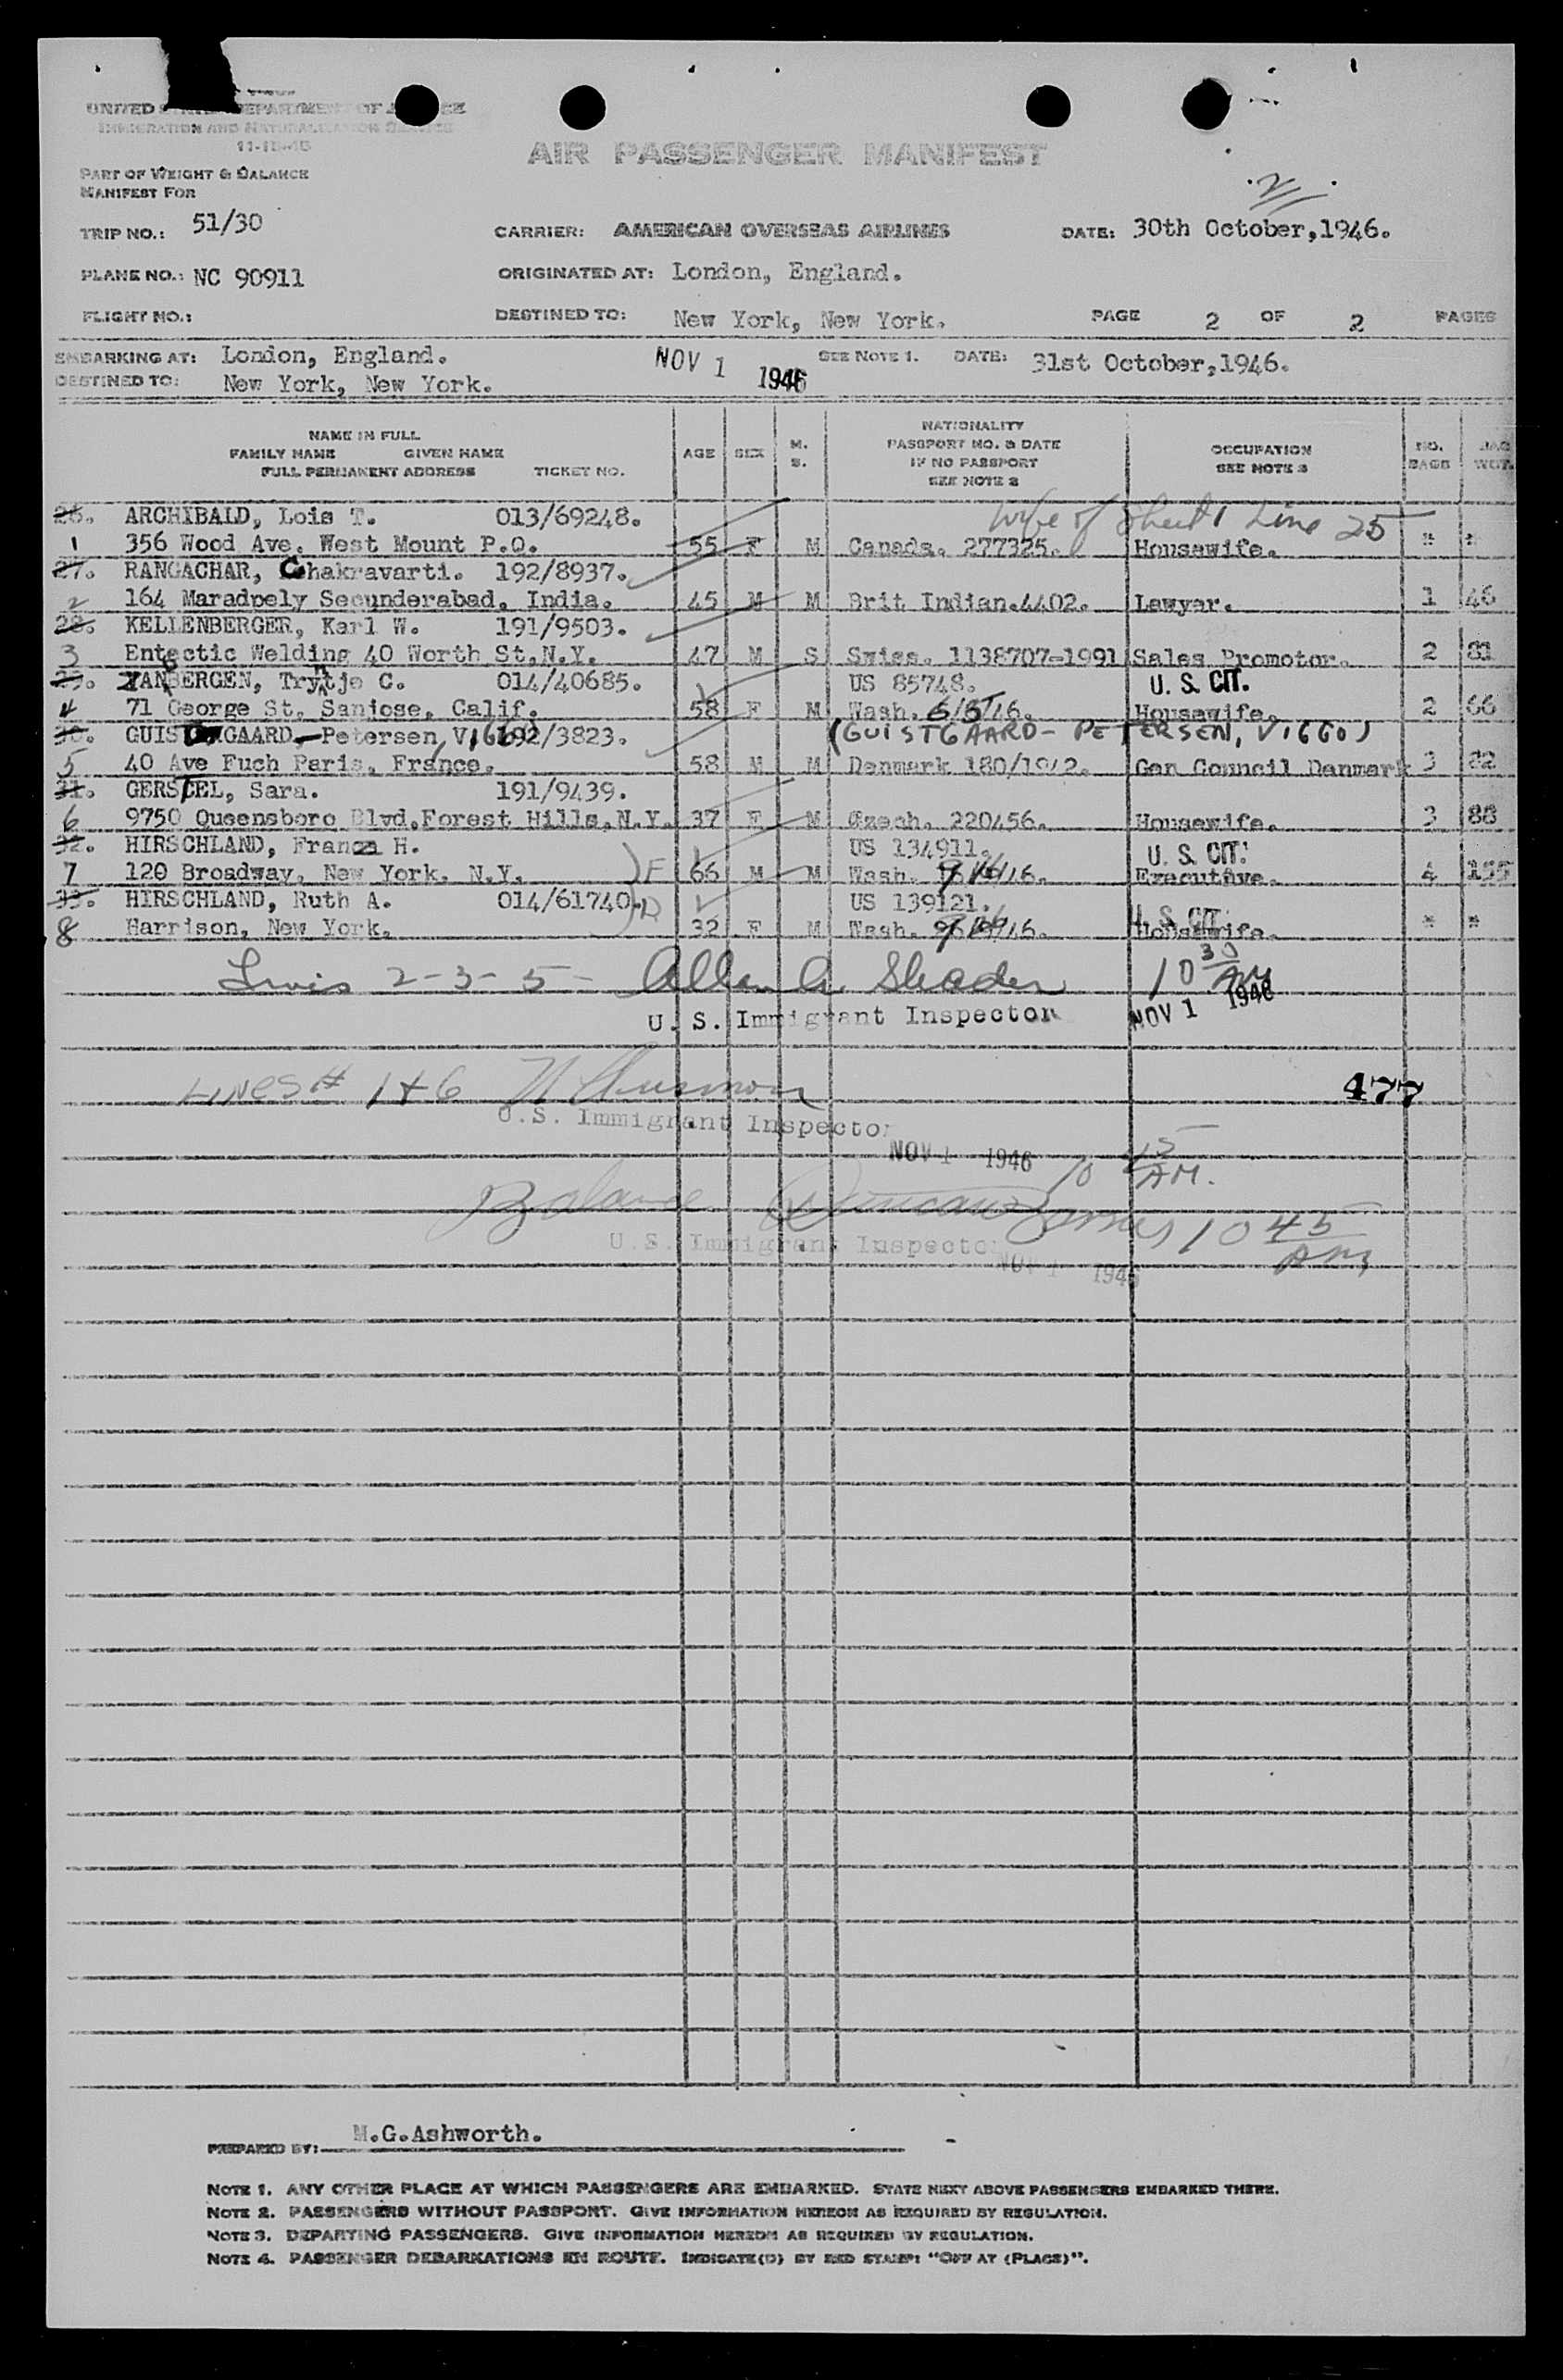 UNITED STATES DEPARTMENT OF JUSTICE
IMMIGRATION AND NATURALIZATION SERVICE
PART OF WEIGHT & BALANCE
MANIFEST FOR
AIR PASSENGER MANIFEST
2
TRIP NO.: 51/30 CARRIER: AMERICAN OVERSEAS AIRLINES DATE: 30th October,1946.
PLANE NO.: NC 90911 ORIGINATED AT: London, England.
FLIGHT NO.: DESTINED TO: New York, New York. PAGE 2 OF 2 PAGES
EMBARKING AT: London, England. NOV 1 1946 SEE NOTE 1. DATE: 31st October,1946.
DESTINED TO: New York, New York.
NAME IN FULL
FAMILY NAME GIVEN NAME
FULL PERMANENT ADDRESS TICKET NO.
AGE SEX M. S.
NATIONALITY
PASSPORT NO. & DATE
IF NO PASSPORT
SEE NOTE 2
OCCUPATION
SEE NOTE 3
NO. BAGS BAG WGT.
26. ARCHIBALD, Lois T. 013/69248. Wife of Sheet 1 Line 25
1 356 Wood Ave. West Mount P.Q. 55 F M Canada. 277325. Housewife. " "
27. RANGACHAR, Chakravarti. 192/8937.
2 164 Maradpely Secunderabad. India. 45 M M Brit Indian.4402. Lawyer. 1 46
28. KELLENBERGER, Karl W. 191/9503.
3 Entectic Welding 40 Worth St.N.Y. 47 M S Swiss. 1138707-1991 Sales Promotor. 2 81
29. VANBERGEN, Tryntje C. 014/40685. US 85748. U. S. CIT.
4 71 George St. Sanjose. Calif. 58 F M Wash. Housewife. 2 66
30. GUISTGAARD-Petersen, Viggo 192/3823. (GUISTGAARD-PETERSEN, VIGGO)
5 40 Ave Fuch Paris. France. 58 M M Denmark 180/1942. Gen Council Danmark 3 82
31. GERSTEL, Sara. 191/9439.
6 9750 Queensboro Blvd.Forest Hills.N.Y. 37 F M Czech. 220456. Housewife. 3 88
32. HIRSCHLAND, Franz H. US 134911. U. S. CIT.
7 120 Broadway. New York. N.Y. F 66 M M Wash. Executive. 4 155
33. HIRSCHLAND, Ruth A. 014/61740. D US 139121. U. S. CIT.
8 Harrison, New York. 32 F M Wash. Housewife. " "
Lines 2-3-5- Allan A. 10 30 AM
U. S. Immigrant Inspector NOV 1 1946
477
LINES # 1+6
U.S. Immigrant Inspector
NOV 1 1946 10 15 AM.
Balance 10 45 AM
U.S. Immigrant Inspector
NOV 1 1946
PREPARED BY: M.G.Ashworth.
NOTE 1. ANY OTHER PLACE AT WHICH PASSENGERS ARE EMBARKED. STATE NEXT ABOVE PASSENGERS EMBARKED THERE.
NOTE 2. PASSENGERS WITHOUT PASSPORT. GIVE INFORMATION HEREON AS REQUIRED BY REGULATION.
NOTE 3. DEPARTING PASSENGERS. GIVE INFORMATION HEREON AS REQUIRED BY REGULATION.
NOTE 4. PASSENGER DEBARKATIONS EN ROUTE. INDICATE(D) BY RED STAMP: "OFF AT (PLACE)".